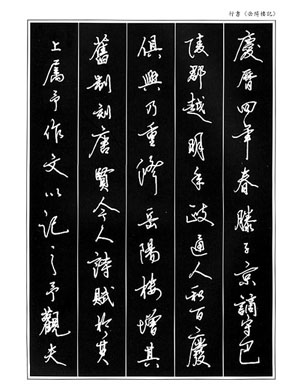 行書《岳陽樓記》
慶曆四年春滕子京謫守巴
陵郡越明年政通人和百廢
俱興乃重修岳陽樓增其
舊制刻唐賢今人詩賦於其
上属予作文以記之予觀夫